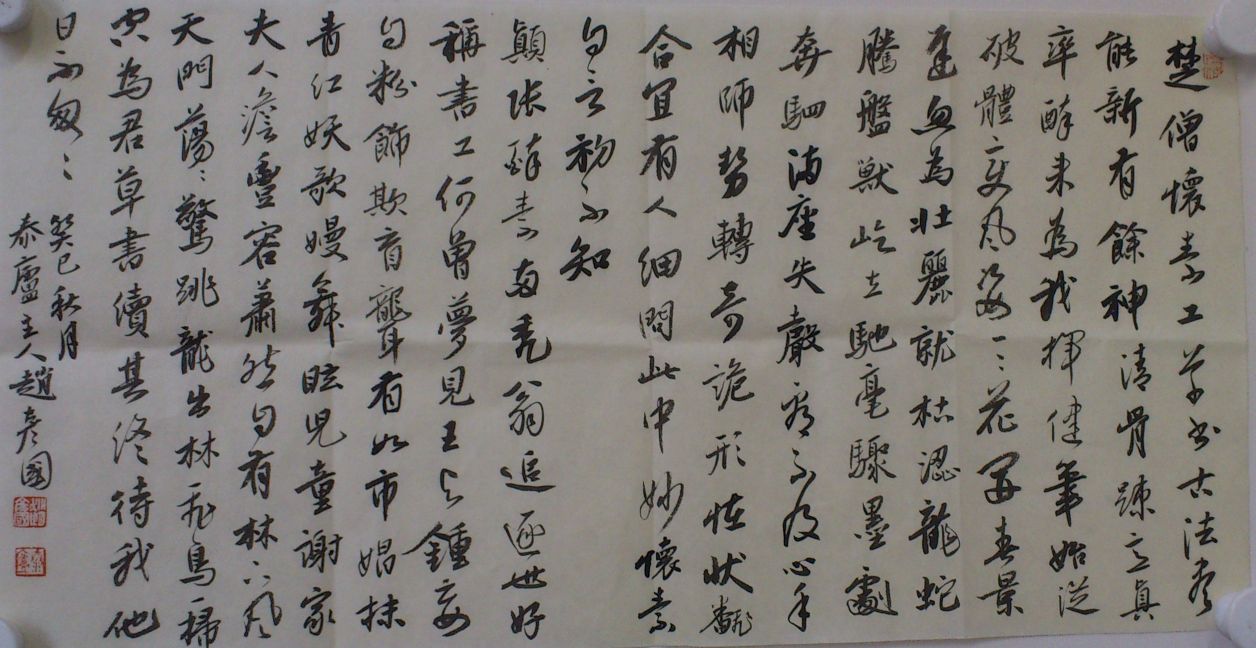 楚僧懷素工草书古法尽
能新有餘神清骨竦意真
率醉来為我揮健筆始從
破體變風姿一一花開春景
遲忽為壯麗就枯澀龍蛇
騰盤獸屹立馳毫驟墨劇
奔駟滿座失聲看不及心手
相師勢轉奇詭形怪狀翻
合宜有人細問此中妙懷素
自言初不知
顛张醉素兩禿翁追逐世好
稱書工何曾夢見王與鍾妄
自粉飾欺盲聾有如市娼抹
青紅妖歌嫚舞眩兒童謝家
夫人澹豐容蕭然自有林下風
天門蕩〻驚跳龍出林飛鳥一掃
空為君草書續其終待我他
日不匆〻
癸巳秋月
泰廬主人趙彥國